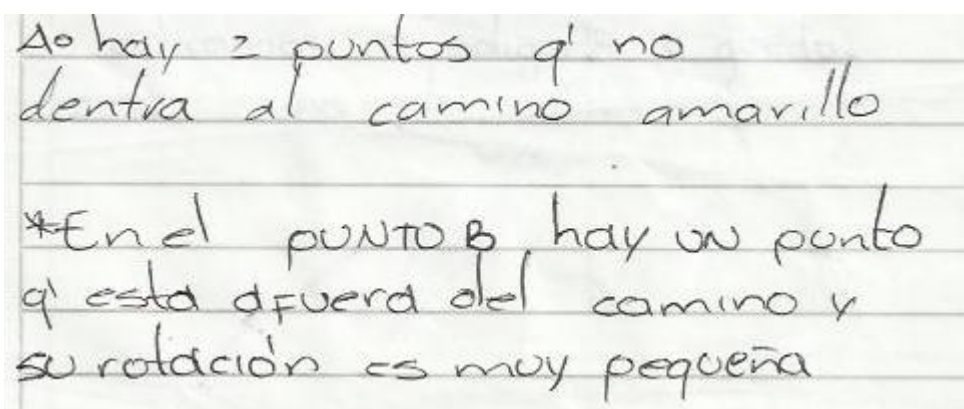 A° hay 2 puntos q' no
dentra al camino amarillo
*En el PUNTO B hay un punto
q' esta afuera del camino y
su rotación es muy pequeña